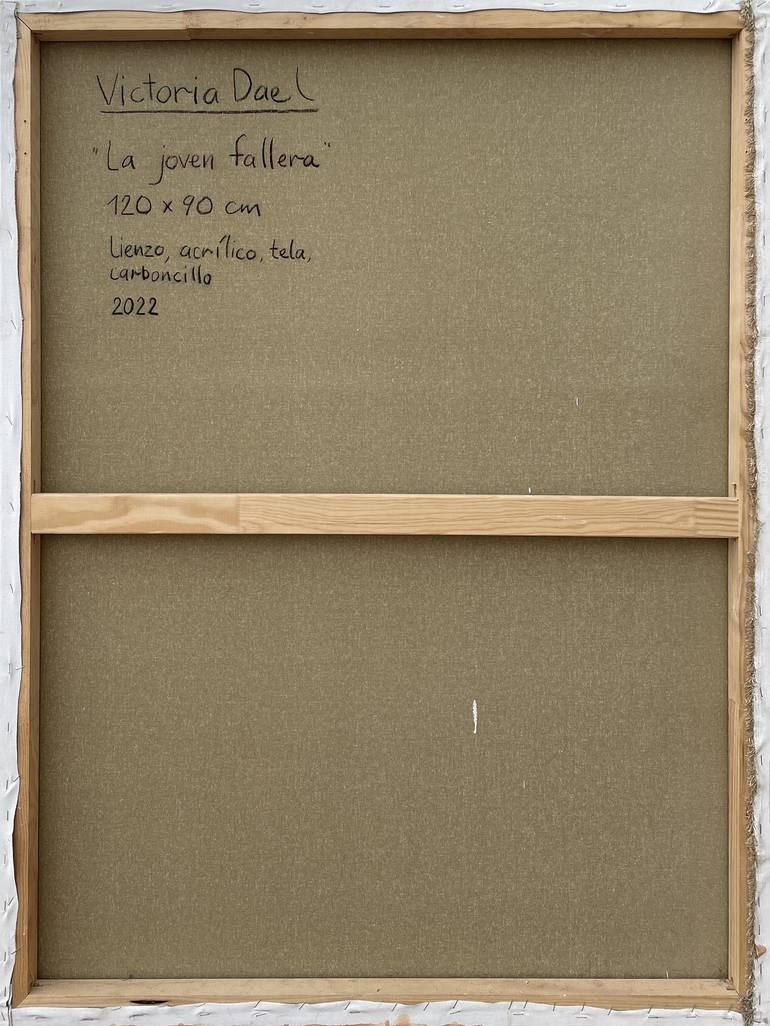 Victoria Dael
"La joven fallera"
120 x 90 cm
Lienzo, acrílico, tela,
carboncillo
2022